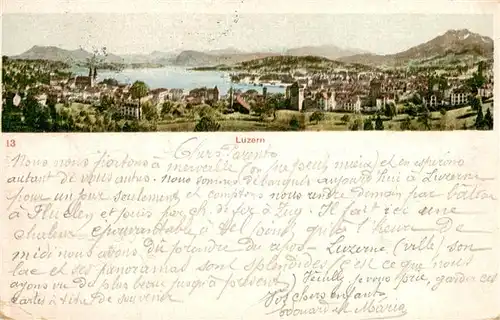 13
Luzern
Chers Parents
Nous nous portons à merveille (on ne peut mieux) et en espérons
autant de vous autres. Nous sommes débarqués aujourd'hui à Luzerne
pour un jour seulement et comptons nous rendre demain par bâteau
à Fluelen et puis par ch. de fer à Zug. Il fait ici une
chaleur épouvantable à tel point, qu'à l'heure de
midi nous avons dû prendre du repos. Luzerne (ville) son
lac et ses panoramas sont splendides (c'est ce que nous
ayons vu de plus beau jusqu'à présent) Veuillez je vous prie, garder ces
cartes à titre de souvenir
Vos chers enfants
Edouard et Maria